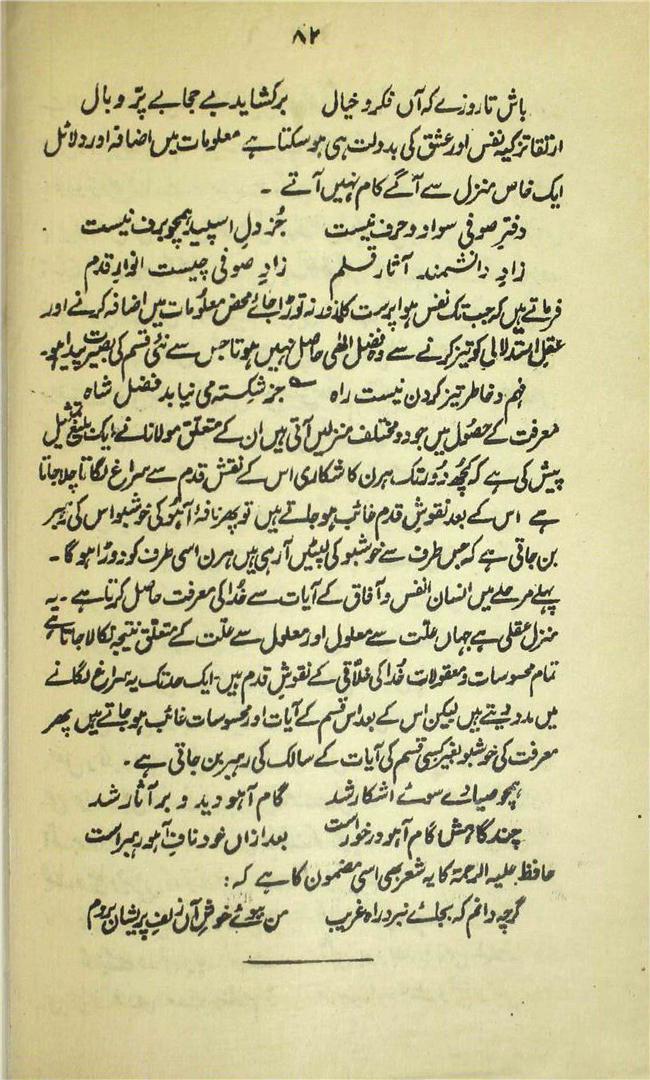 ۸۲
باش تا روزے کہ آں فکر و خیال برکشاید بے حجابے پرّ و بال
ارتقا تزکیہ نفس اور عشق کی بدولت ہی ہو سکتا ہے معلومات میں اضافہ اور دلائل
ایک خاص منزل سے آگے کام نہیں آتے ۔
دفترِ صوفی سواد و حرف نیست جُز دلِ اسپید ہمچو برف نیست
زادِ دانشمند آثارِ قلم زادِ صوفی چیست انوارِ قدم
فرماتے ہیں کہ جب تک نفس ہوا پرست کا زور نہ توڑا جائے محض معلومات میں اضافہ کرنے اور
عقل استدلالی کو تیز کرنے سے وہ فضل الٰہی حاصل نہیں ہوتا جس سے نئی قسم کی بصیرت پیدا ہو۔
فہم و خاطر تیز کردن نیست راہ جز شکستہ می نیابد فضل شاہ
معرفت کے حصول میں جو دو مختلف منزلیں آتی ہیں ان کے متعلق مولانا نے ایک بلیغ تمثیل
پیش کی ہے کہ کچھ دُور تک ہرن کا شکاری اس کے نقش قدم سے سراغ لگاتا چلا جاتا
ہے اس کے بعد نقوش قدم غائب ہو جاتے ہیں تو پھر نافۂ آہُو کی خوشبو اس کی رہبر
بن جاتی ہے کہ جس طرف سے خوشبو کی لپٹیں آ رہی ہیں ہرن اسی طرف کو دوڑا ہوگا۔
پہلے مرحلے میں انسان انفس و آفاق کے آیات سے خُدا کی معرفت حاصل کرتا ہے۔ یہ
منزل عقلی ہے جہاں علّت سے معلول اور معلول سے علّت کے متعلق نتیجہ نکالا جاتا ہے
تمام محسوسات و معقولات خُدا کی خلّاقی کے نقوشِ قدم ہیں۔ ایک حد تک یہ سراغ لگانے
میں مدد دیتے ہیں لیکن اس کے بعد اس قسم کے آیات اور محسوسات غائب ہو جاتے ہیں پھر
معرفت کی خوشبو بغیر کسی قسم کی آیات کے سالک کی رہبر بن جاتی ہے۔
ہمچو صیادے سوئے اشکار شد گام آہو دید و بر آثار شد
چند گاہش گام آہو در خورست بعد ازاں خود نافِ آہو رہبر است
حافظ علیہ الرحمۃ کا یہ شعر بھی اسی مضمون کا ہے کہ:
گرچہ دانم کہ بجائے نبرد راہ غریب من بہوئے خوشِ آں زلفِ پریشان بروم